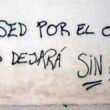 SED POR EL
DEJARÁ SIN